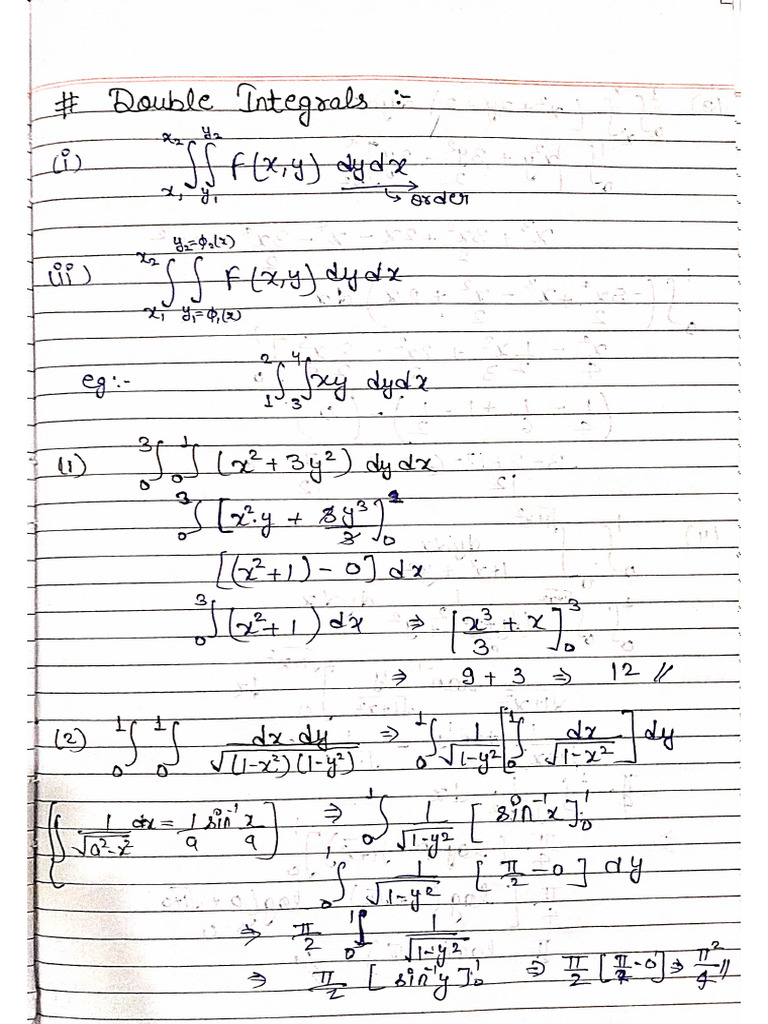 # Double Integrals :-
(i) ∫_{x₁}^{x₂} ∫_{y₁}^{y₂} F(x,y) dydx
↳ order
(ii) ∫_{x₁}^{x₂} ∫_{y₁=ϕ₁(x)}^{y₂=ϕ₂(x)} F(x,y) dydx
eg:- ∫_1^2 ∫_3^4 xy dydx
(1) ∫_0^3 ∫_0^1 (x² + 3y²) dydx
∫_0^3 [x²·y + 3y³/3]_0^1
[(x²+1) - 0] dx
∫_0^3 (x²+1) dx ⇒ [x³/3 + x]_0^3
⇒ 9 + 3 ⇒ 12 //
(2) ∫_0^1 ∫_0^1 dx·dy/√((1-x²)(1-y²)) ⇒ ∫_0^1 1/√(1-y²) [∫_0^1 dx/√(1-x²)] dy
{∫ 1/√(a²-x²) dx = 1/a sin⁻¹ x/a} ⇒ ∫_0^1 1/√(1-y²) [sin⁻¹x]_0^1
∫_0^1 1/√(1-y²) [π/2 - 0] dy
⇒ π/2 ∫_0^1 1/√(1-y²)
⇒ π/2 [sin⁻¹y]_0^1 ⇒ π/2 [π/2 - 0] ⇒ π²/4 //